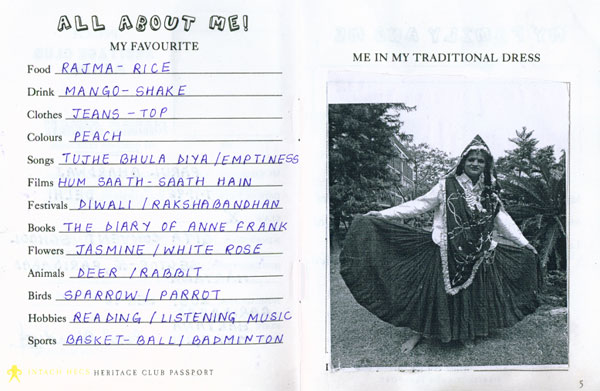 ALL ABOUT ME!
MY FAVOURITE
Food RAJMA - RICE
Drink MANGO - SHAKE
Clothes JEANS - TOP
Colours PEACH
Songs TUJHE BHULA DIYA / EMPTINESS
Films HUM SAATH - SAATH HAIN
Festivals DIWALI / RAKSHABANDHAN
Books THE DIARY OF ANNE FRANK
Flowers JASMINE / WHITE ROSE
Animals DEER / RABBIT
Birds SPARROW / PARROT
Hobbies READING / LISTENING MUSIC
Sports BASKET - BALL / BADMINTON
INTACH HECS HERITAGE CLUB PASSPORT
ME IN MY TRADITIONAL DRESS
5